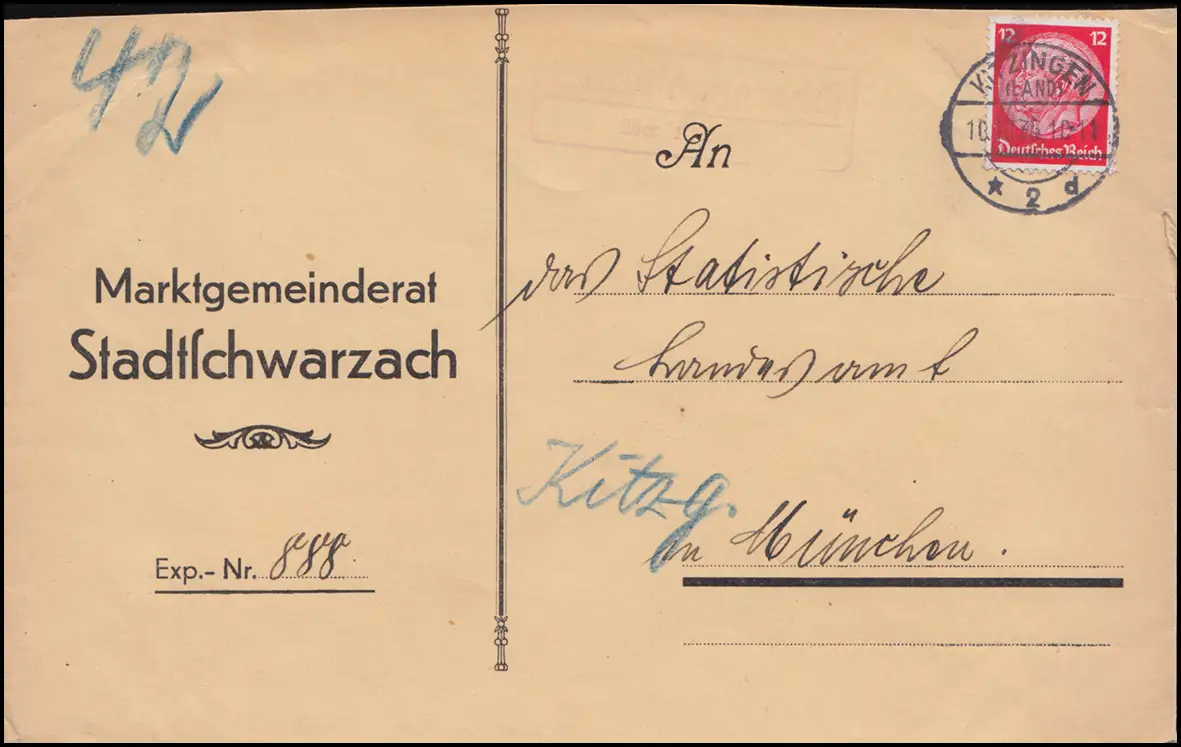 42
Marktgemeinderat
Stadtſchwarzach
Exp.- Nr. 888
An
das Statistische
Landesamt
Kitzg.
in München.
12 12
Deutſches Reich
KITZINGEN
(LAND)
10. 10-11
* 2 d
über